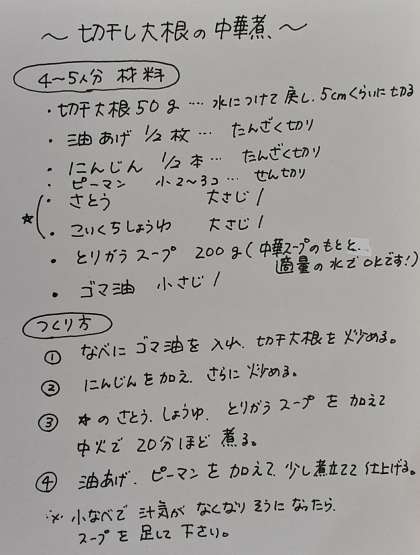 ～切干し大根の中華煮、～
4～5人分 材料
・切干大根50g…水につけて戻し、5cmくらいに切る
・油あげ 1/2枚… たんざく切り
・にんじん 1/2本… たんざく切り
・ピーマン 小2～3コ… せん切り
☆ ・さとう 大さじ1
・こいくちしょうゆ 大さじ1
・とりがらスープ 200g(中華スープのもとと、
適量の水でOKです!)
・ゴマ油 小さじ1
つくり方
① なべにゴマ油を入れ、切干大根を炒める。
② にんじんを加え、さらに炒める。
③ ☆のさとう、しょうゆ、とりがらスープを加えて
中火で20分ほど煮る。
④ 油あげ、ピーマンを加えて、少し煮立てて仕上げる。
※ 小なべで汁気がなくなりそうになったら、
スープを足して下さい。